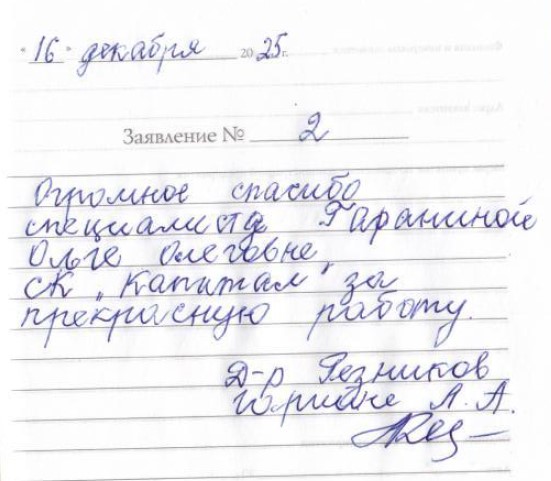 "16" декабря 2025г.
Заявление № 2
Огромное спасибо
специалисту Гараниной
Ольге Олеговне
СК "Капитал" за
прекрасную работу.
Д-р Резников
А. А.